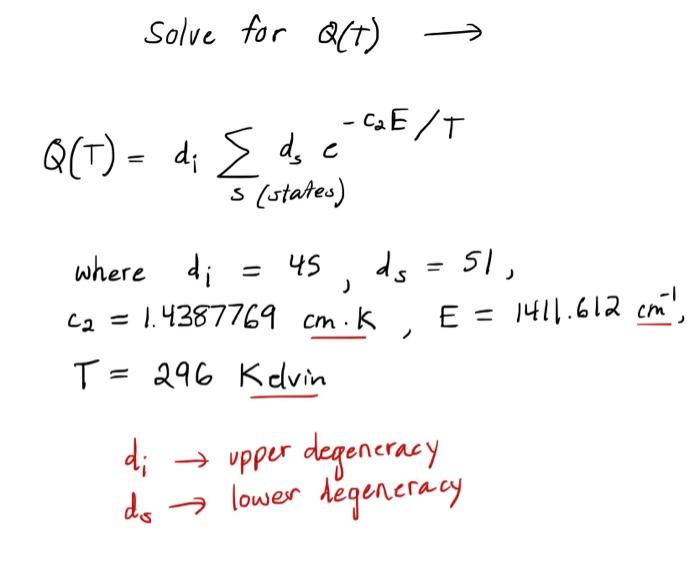 Solve for Q(T) →
Q(T) = dᵢ ∑ dₛ e^(-c₂E/T)
s (states)
where dᵢ = 45, dₛ = 51,
c₂ = 1.4387769 cm·K, E = 1411.612 cm⁻¹,
T = 296 Kelvin
dᵢ → upper degeneracy
dₛ → lower degeneracy